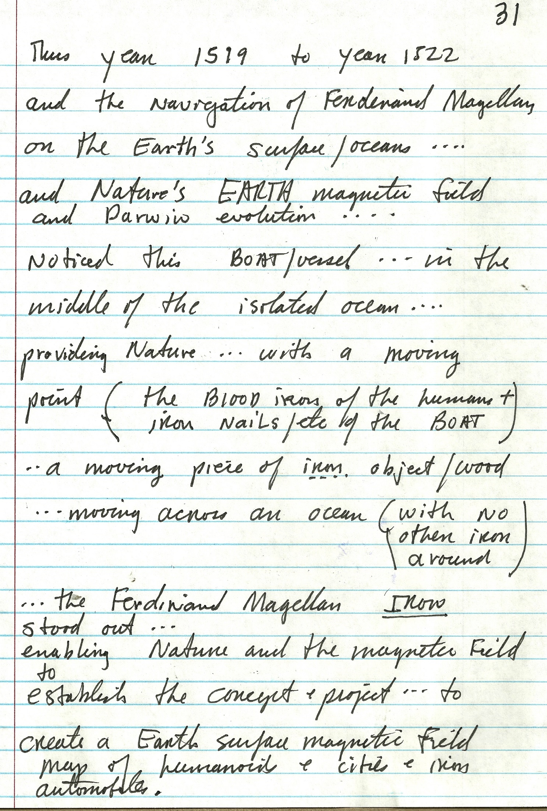 31
Thus year 1519 to year 1522
and the navigation of Ferdinand Magellan
on the Earth's surface/oceans ....
and Nature's EARTH magnetic field
and Darwin evolution ....
Noticed this BOAT/vessel ... in the
middle of the isolated ocean ....
providing Nature ... with a moving
point ( the Blood iron of the humans +
iron nails/etc of the BOAT )
.. a moving piece of iron object/wood
... moving across an ocean ( with no
other iron
around )
... the Ferdinand Magellan Iron
stood out ...
enabling Nature and the magnetic Field
to
establish the concept + project ... to
create a Earth surface magnetic field
map of humanoid + cities + iron
automobiles.